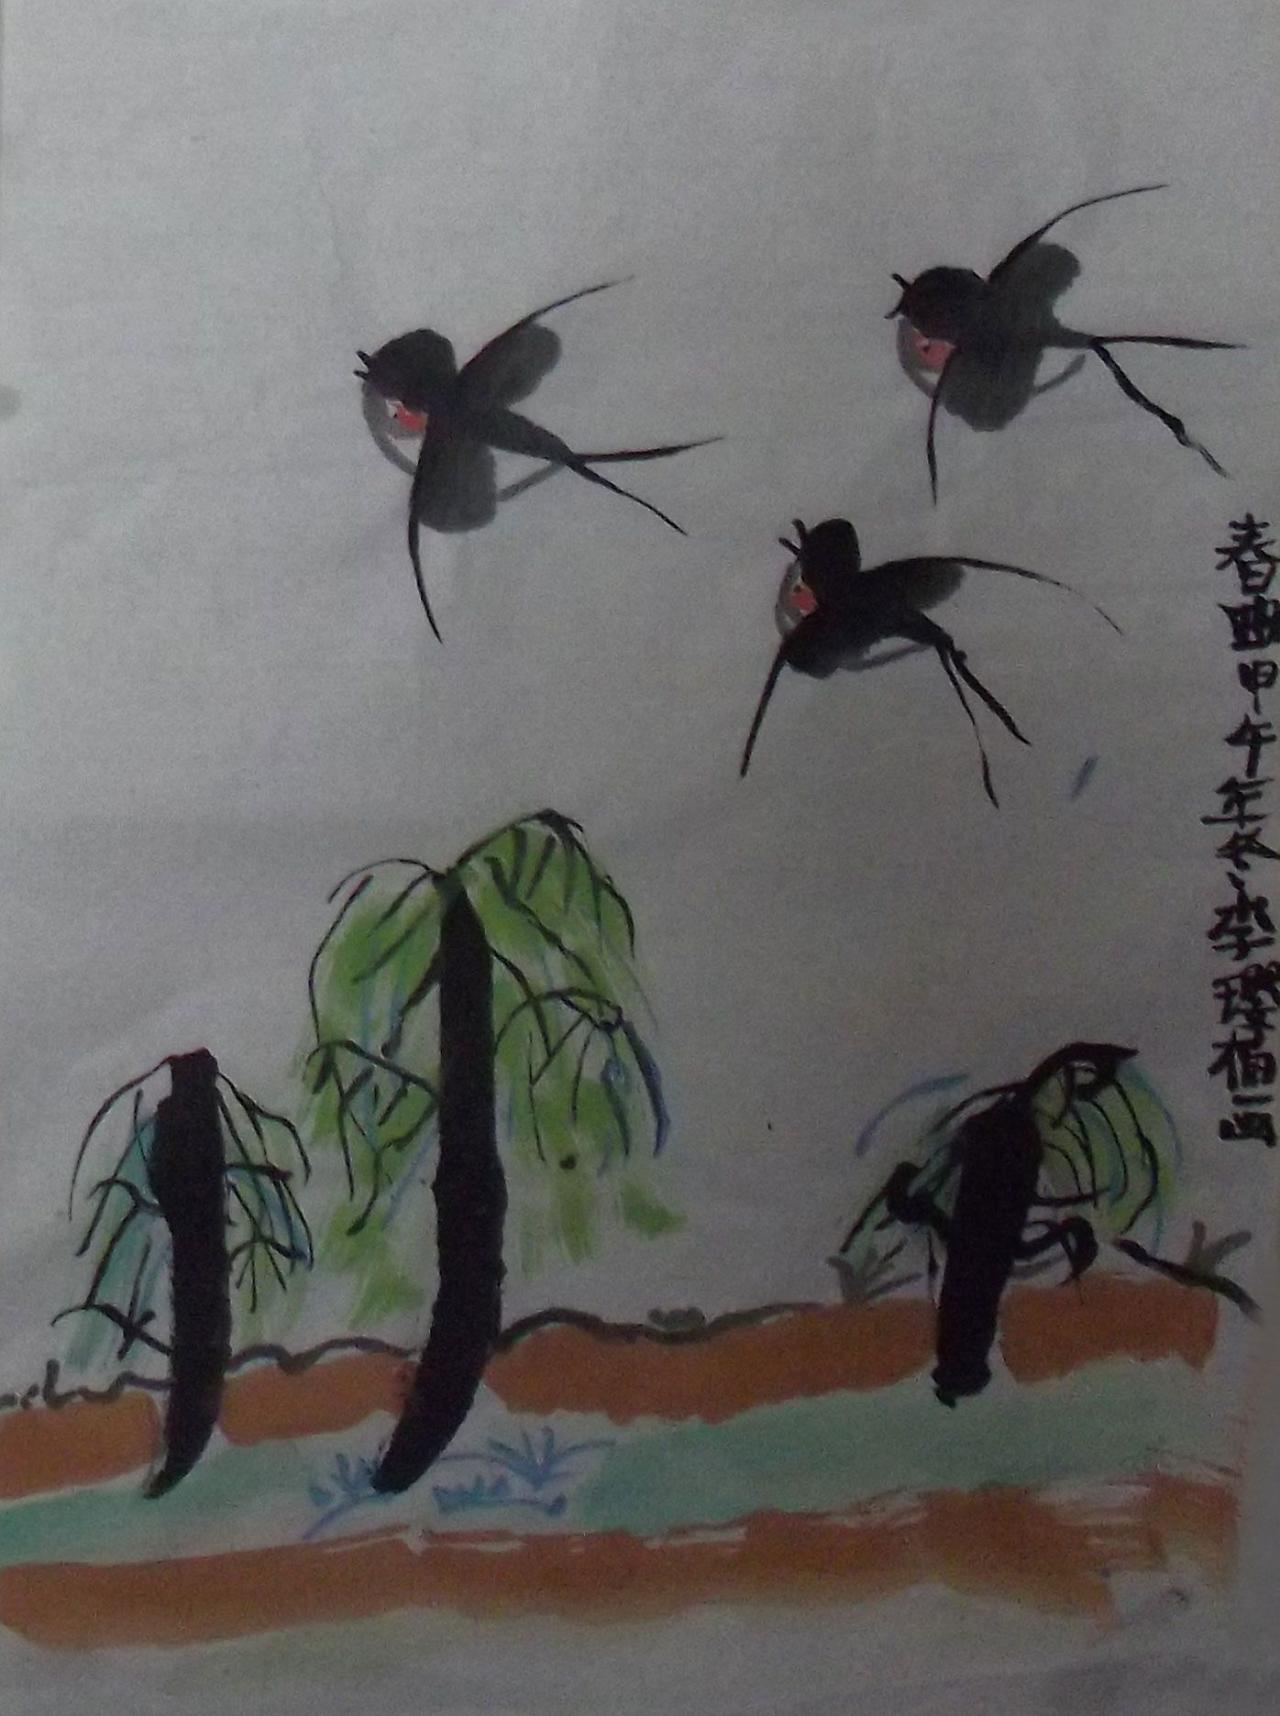 春幽甲午年冬李璟栢画